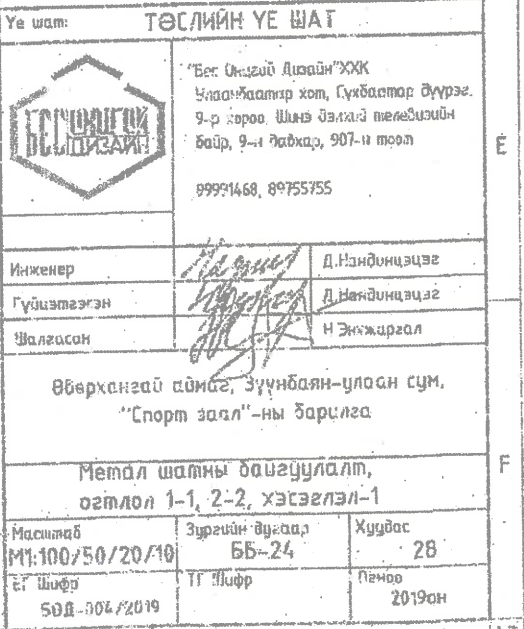 Үе шат: ТӨСЛИЙН ҮЕ ШАТ
БЕС ӨНЦГӨЙ
ДИЗАЙН
"Бес Өнцгий Дизайн"ХХК
Улаанбаатар хот, Сүхбаатар дүүрэг,
9-р хороо, Шинэ дэлхий телевизийн
байр, 9-н давхар, 907-н тоот
99991468, 89755755
E
Инженер Д.Нандинцэцэг
Гүйцэтгэсэн Д.Нандинцэцэг
Шалгасан Н.Энхжаргал
Өвөрхангай аймаг, Зүүнбаян-улаан сум,
"Спорт заал"-ны барилга
F
Метал шатны байгуулалт,
огтлол 1-1, 2-2, хэсэглэл-1
Масштаб Зургийн дугаар Хуудас
М1:100/50/20/10 ББ-24 28
ЕГ Шифр ТГ Шифр Огноо
БӨД-004/2019 2019он